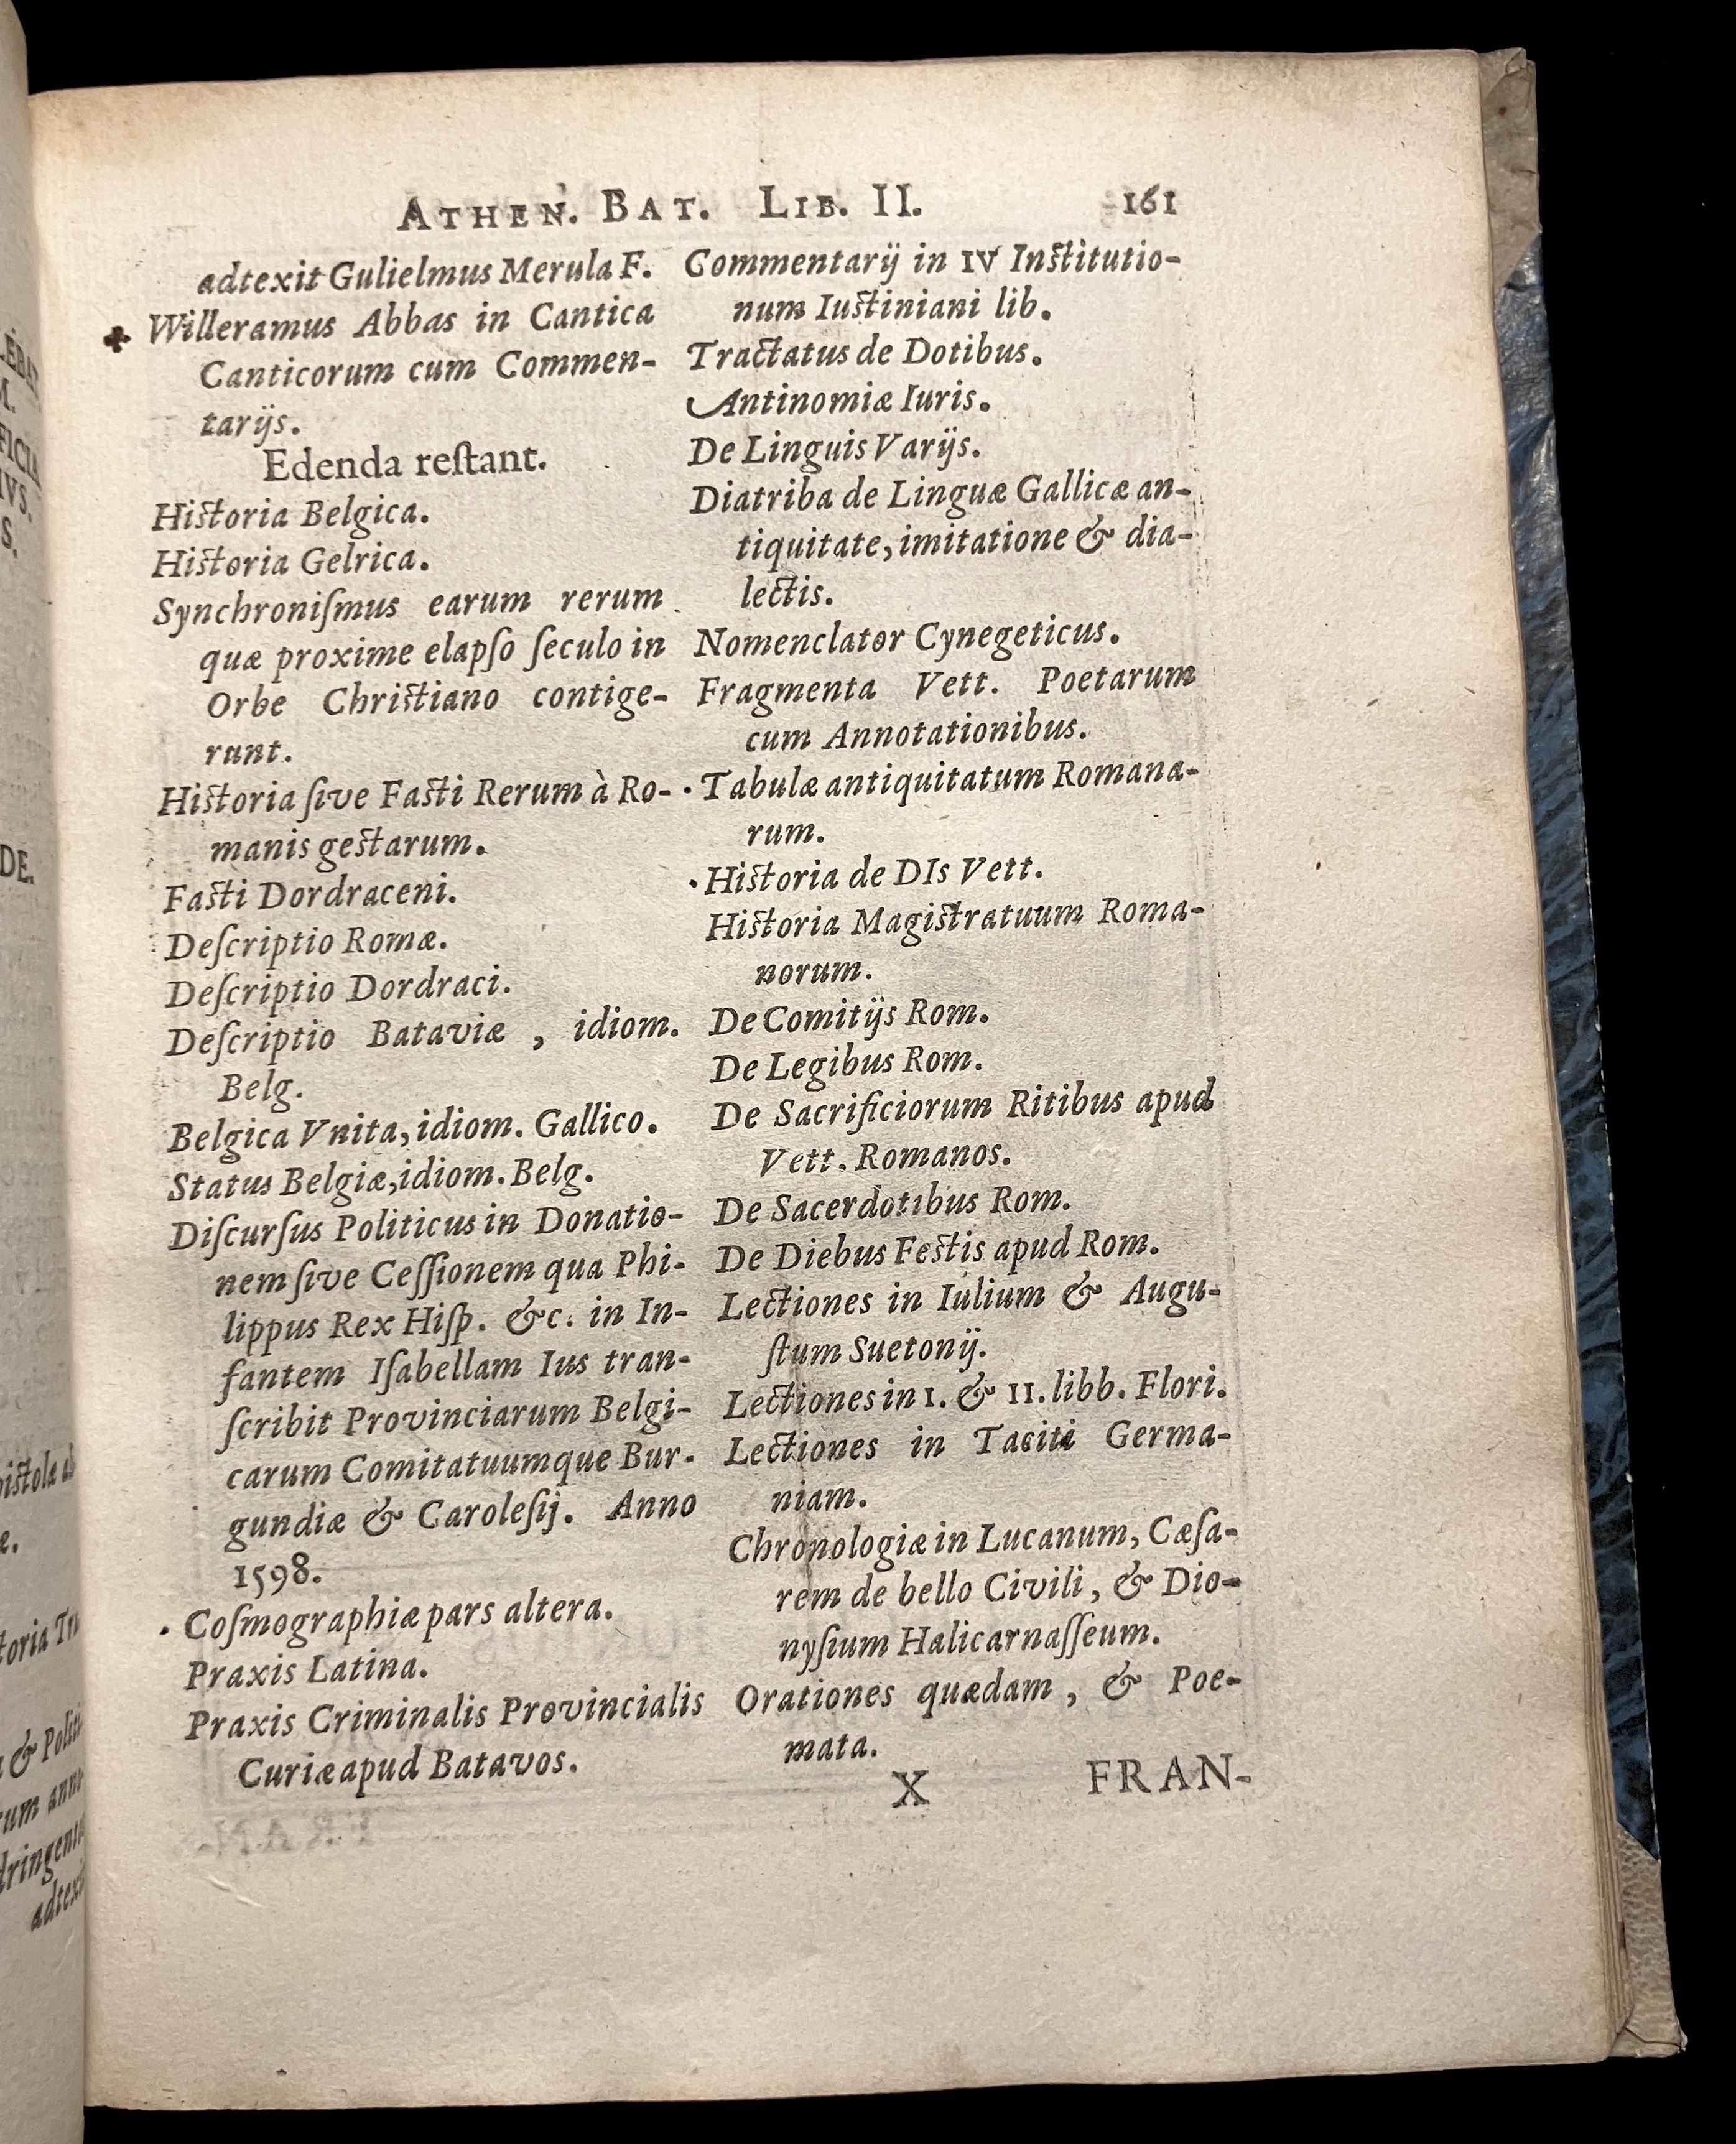 ATHEN. BAT. LIB. II. 161
adtexit Gulielmus Merula F.
✤ Willeramus Abbas in Cantica
Canticorum cum Commen-
tarijs.
Edenda reſtant.
Hiſtoria Belgica.
Hiſtoria Gelrica.
Synchroniſmus earum rerum
quæ proxime elapſo ſeculo in
Orbe Chriſtiano contige-
runt.
Hiſtoria ſive Faſti Rerum à Ro-
manis geſtarum.
Faſti Dordraceni.
Deſcriptio Romæ.
Deſcriptio Dordraci.
Deſcriptio Bataviæ , idiom.
Belg.
Belgica Vnita, idiom. Gallico.
Status Belgiæ, idiom. Belg.
Diſcurſus Politicus in Donatio-
nem ſive Ceſſionem qua Phi-
lippus Rex Hiſp. &c. in In-
fantem Iſabellam Ius tran-
ſcribit Provinciarum Belgi-
carum Comitatuumque Bur-
gundiæ & Caroleſij. Anno
1598.
Coſmographiæ pars altera.
Praxis Latina.
Praxis Criminalis Provincialis
Curiæ apud Batavos.
Commentarij in IV Inſtitutio-
num Iuſtiniani lib.
Tractatus de Dotibus.
Antinomiæ Iuris.
De Linguis Varijs.
Diatriba de Linguæ Gallicæ an-
tiquitate, imitatione & dia-
lectis.
Nomenclator Cynegeticus.
Fragmenta Vett. Poetarum
cum Annotationibus.
Tabulæ antiquitatum Romana-
rum.
Hiſtoria de DIs Vett.
Hiſtoria Magiſtratuum Roma-
norum.
De Comitijs Rom.
De Legibus Rom.
De Sacrificiorum Ritibus apud
Vett. Romanos.
De Sacerdotibus Rom.
De Diebus Feſtis apud Rom.
Lectiones in Iulium & Augu-
ſtum Suetonij.
Lectiones in I. & II. libb. Flori.
Lectiones in Taciti Germa-
niam.
Chronologiæ in Lucanum, Cæſa-
rem de bello Civili, & Dio-
nyſium Halicarnaſſeum.
Orationes quædam , & Poe-
mata.
X FRAN-